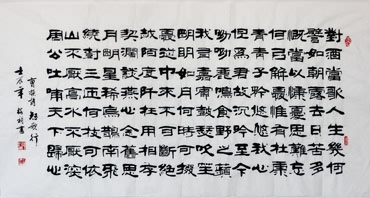 對酒當歌人生幾何
譬如朝露去日苦多
慨當以慷憂思難忘
何以解憂惟有杜康
青青子衿悠悠我心
但為君故沉吟至今
呦呦鹿鳴食野之蘋
我有嘉賓鼓瑟吹笙
明明如月何時可掇
憂從中來不可斷絕
越陌度阡枉用相存
契闊談讌心念舊恩
月明星稀烏鵲南飛
繞樹三匝何枝可依
山不厭高水不厭深
周公吐哺天下歸心
曹操詩 短歌行
壬辰年書